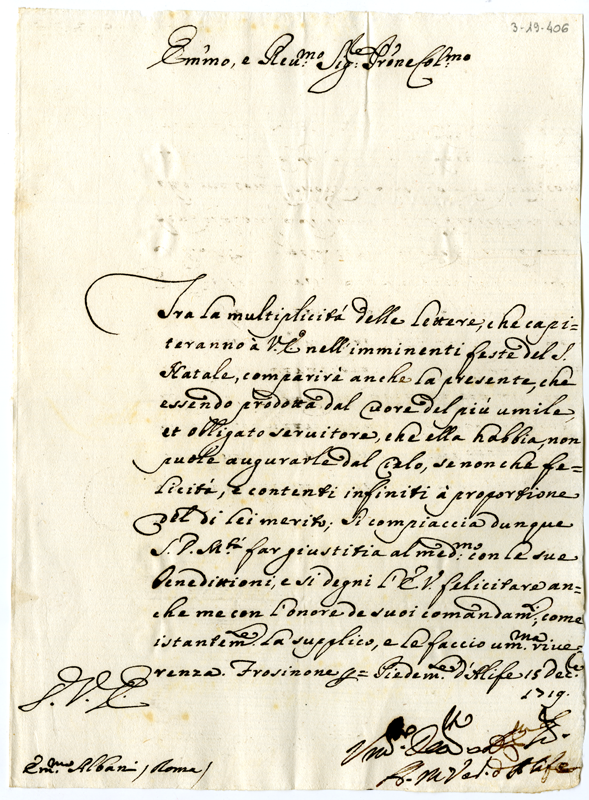 3-19-406
Em̃mo, e Reu.mo Sig.r P̃rone Col.mo
Tra la multiplicitá delle lettere, che capi=
teranno à V.E. nell'imminenti feste del S.
Natale, comparirà anche la presente, che
essendo prodotta dal cuore del piú umile,
et obligato seruitore, che ella habbia, non
puole augurarle dal Cielo, se non che fe=
licitá, e contenti infiniti à proportione
del di lei merito; Si compiaccia dunque
S.D.M.tá far giustitia al med.mo con le sue
benedittioni, e si degni l'E.V. felicitare an=
che me con l'onore de suoi comandam.ti, come
istantem.te la supplico, e le faccio um.ma riue=
renza. Frosinone p= Piedem.te d'Alife 15 Dec.e
1719.
S. V. E.
Em.mo Albani, Roma
Um.o
d'Alife